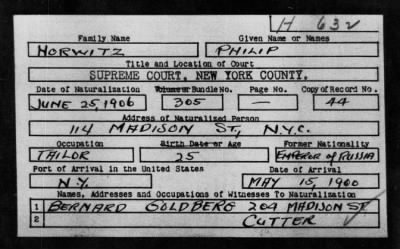 H 632
Family Name Given Name or Names
HORWITZ PHILIP
Title and Location of Court
SUPREME COURT, NEW YORK COUNTY.
Date of Naturalization Volume or Bundle No. Page No. Copy of Record No.
JUNE 25, 1906 305 — 44
Address of Naturalized Person
114 MADISON ST, N.Y.C.
Occupation Birth Date or Age Former Nationality
TAILOR 25 EMPEROR of RUSSIA
Port of Arrival in the United States Date of Arrival
N.Y. MAY 15, 1900
Names, Addresses and Occupations of Witnesses To Naturalization
1 BERNARD GOLDBERG 204 MADISON ST.
2 CUTTER